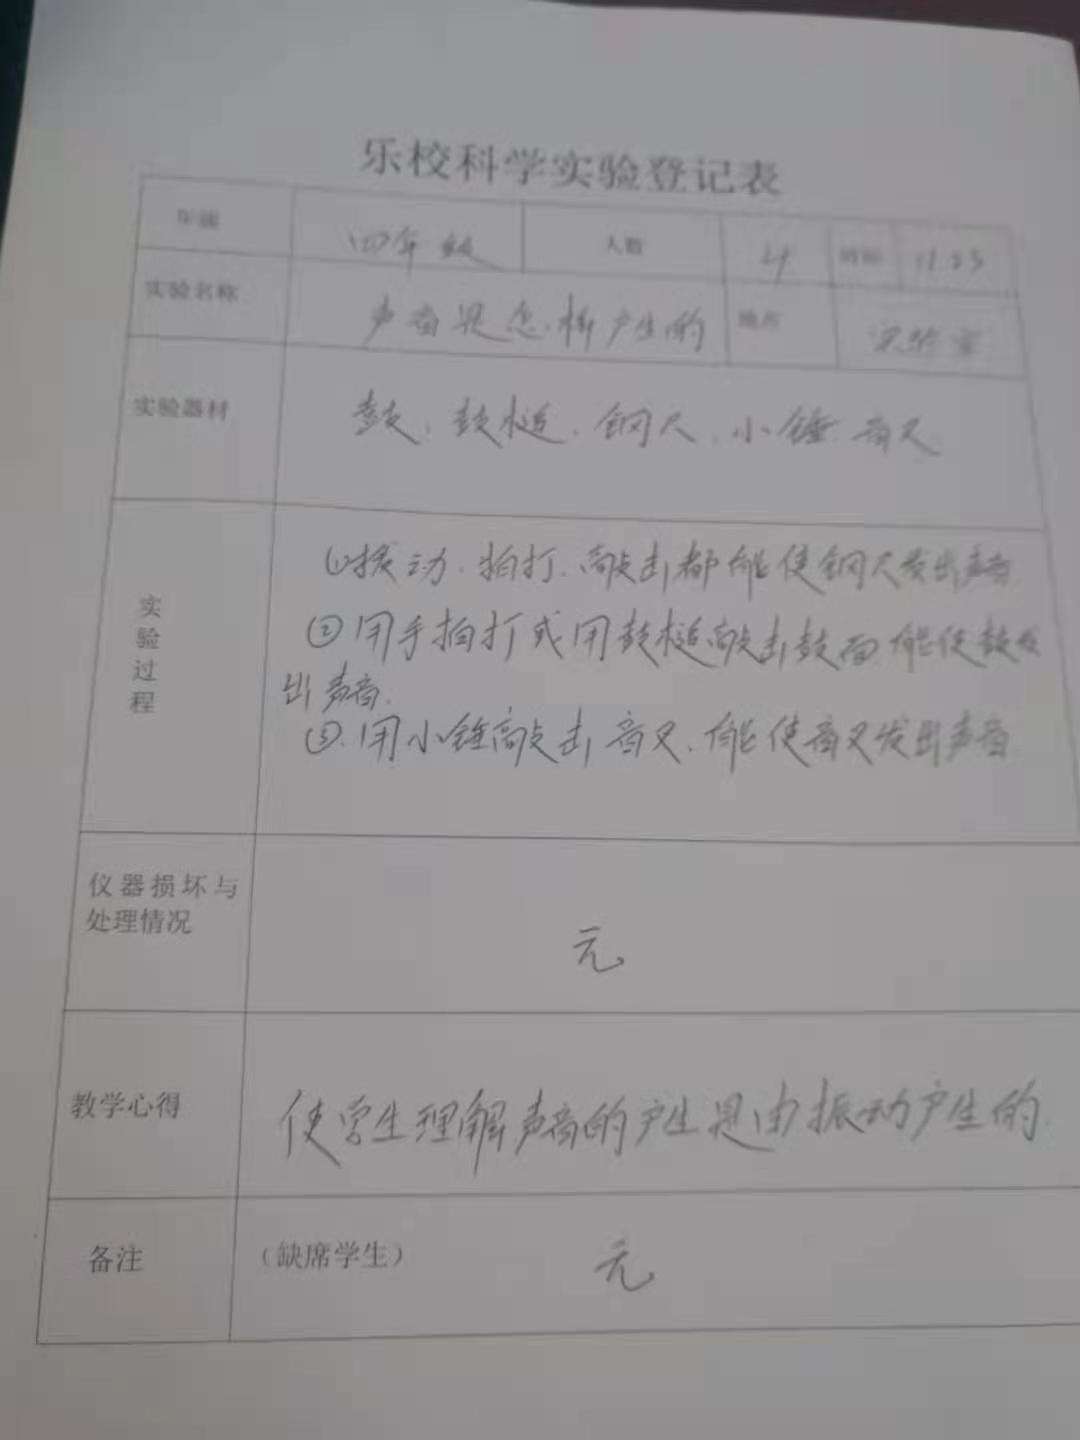 乐校科学实验登记表
年级 四年级 人数 4 时间 11.23
实验名称 声音是怎样产生的 地点 实验室
实验器材 鼓、鼓槌、钢尺、小锤、音叉
实验过程
①拨动、拍打、敲击都能使钢尺发出声音
②用手拍打或用鼓槌敲击鼓面能使鼓发
出声音.
③.用小锤敲击音叉、能使音叉发出声音
仪器损坏与
处理情况
无
教学心得 使学生理解声音的产生是由振动产生的.
备注 (缺席学生) 无